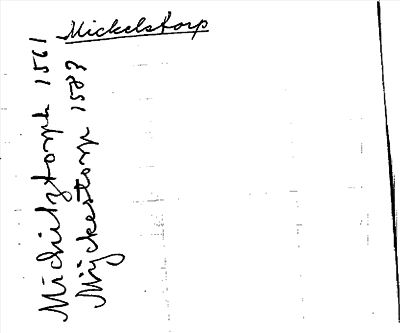 Mickelstorp
Michilztorph 1561
Myckestorp 1583